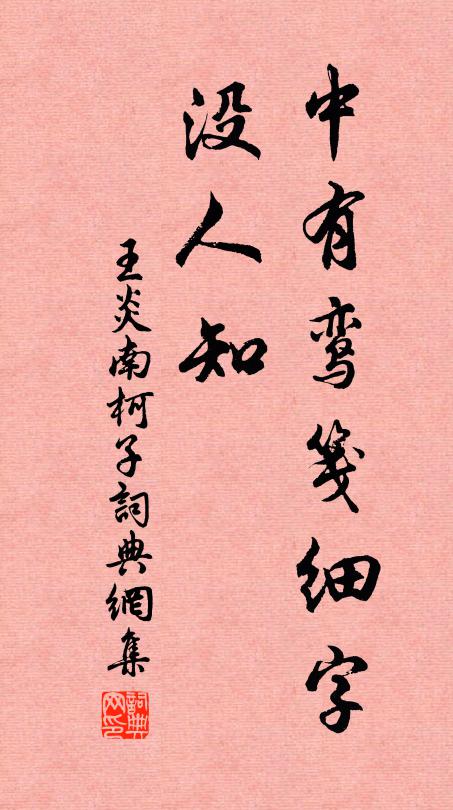 中有鸾笺细字
没人知
王炎南柯子詞典網集
詞典网印